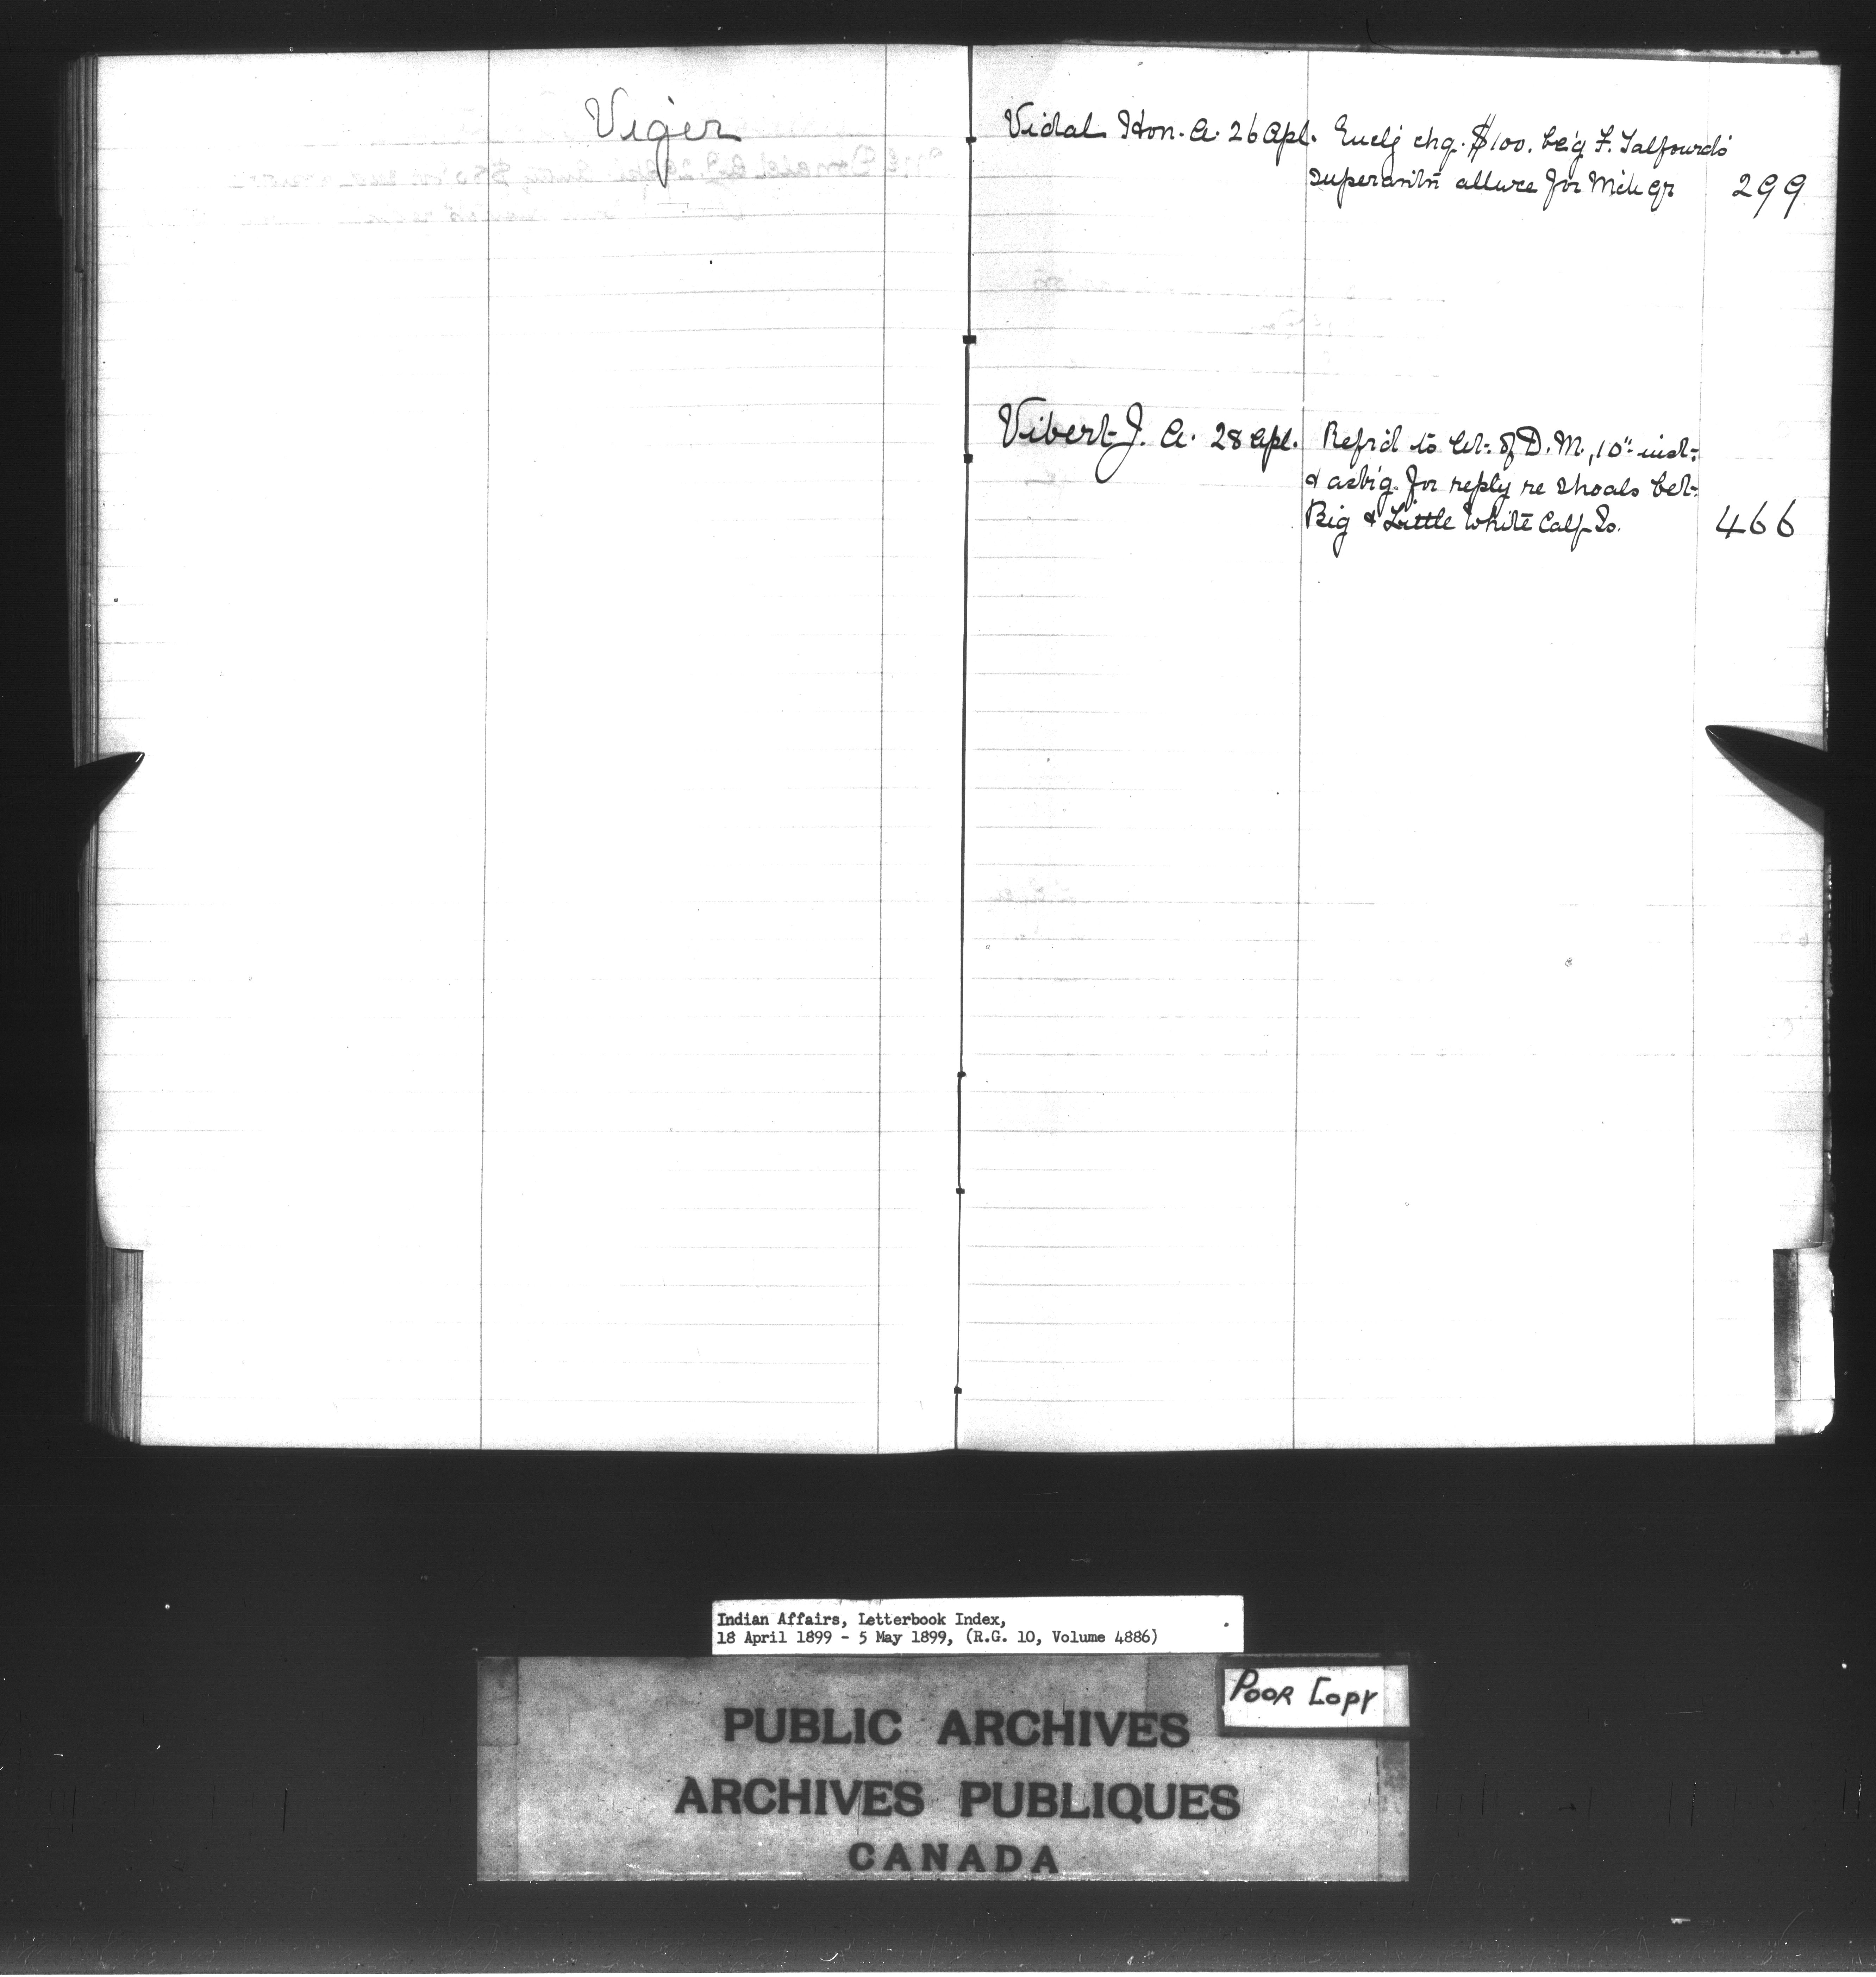 Viger
Vidal Hon. A. 26 Apl. Enclg chq. $100. be'g F. Talfourd's
superantn allwce for Mch qr 299
Vibert J. A. 28 Apl. Refd to let. of D. M., 10" inst.
& ask'g for reply re shoals bet.
Big & Little White Calf Is. 466
Indian Affairs, Letterbook Index,
18 April 1899 - 5 May 1899, (R.G. 10, Volume 4886)
POOR COPY
PUBLIC ARCHIVES
ARCHIVES PUBLIQUES
CANADA